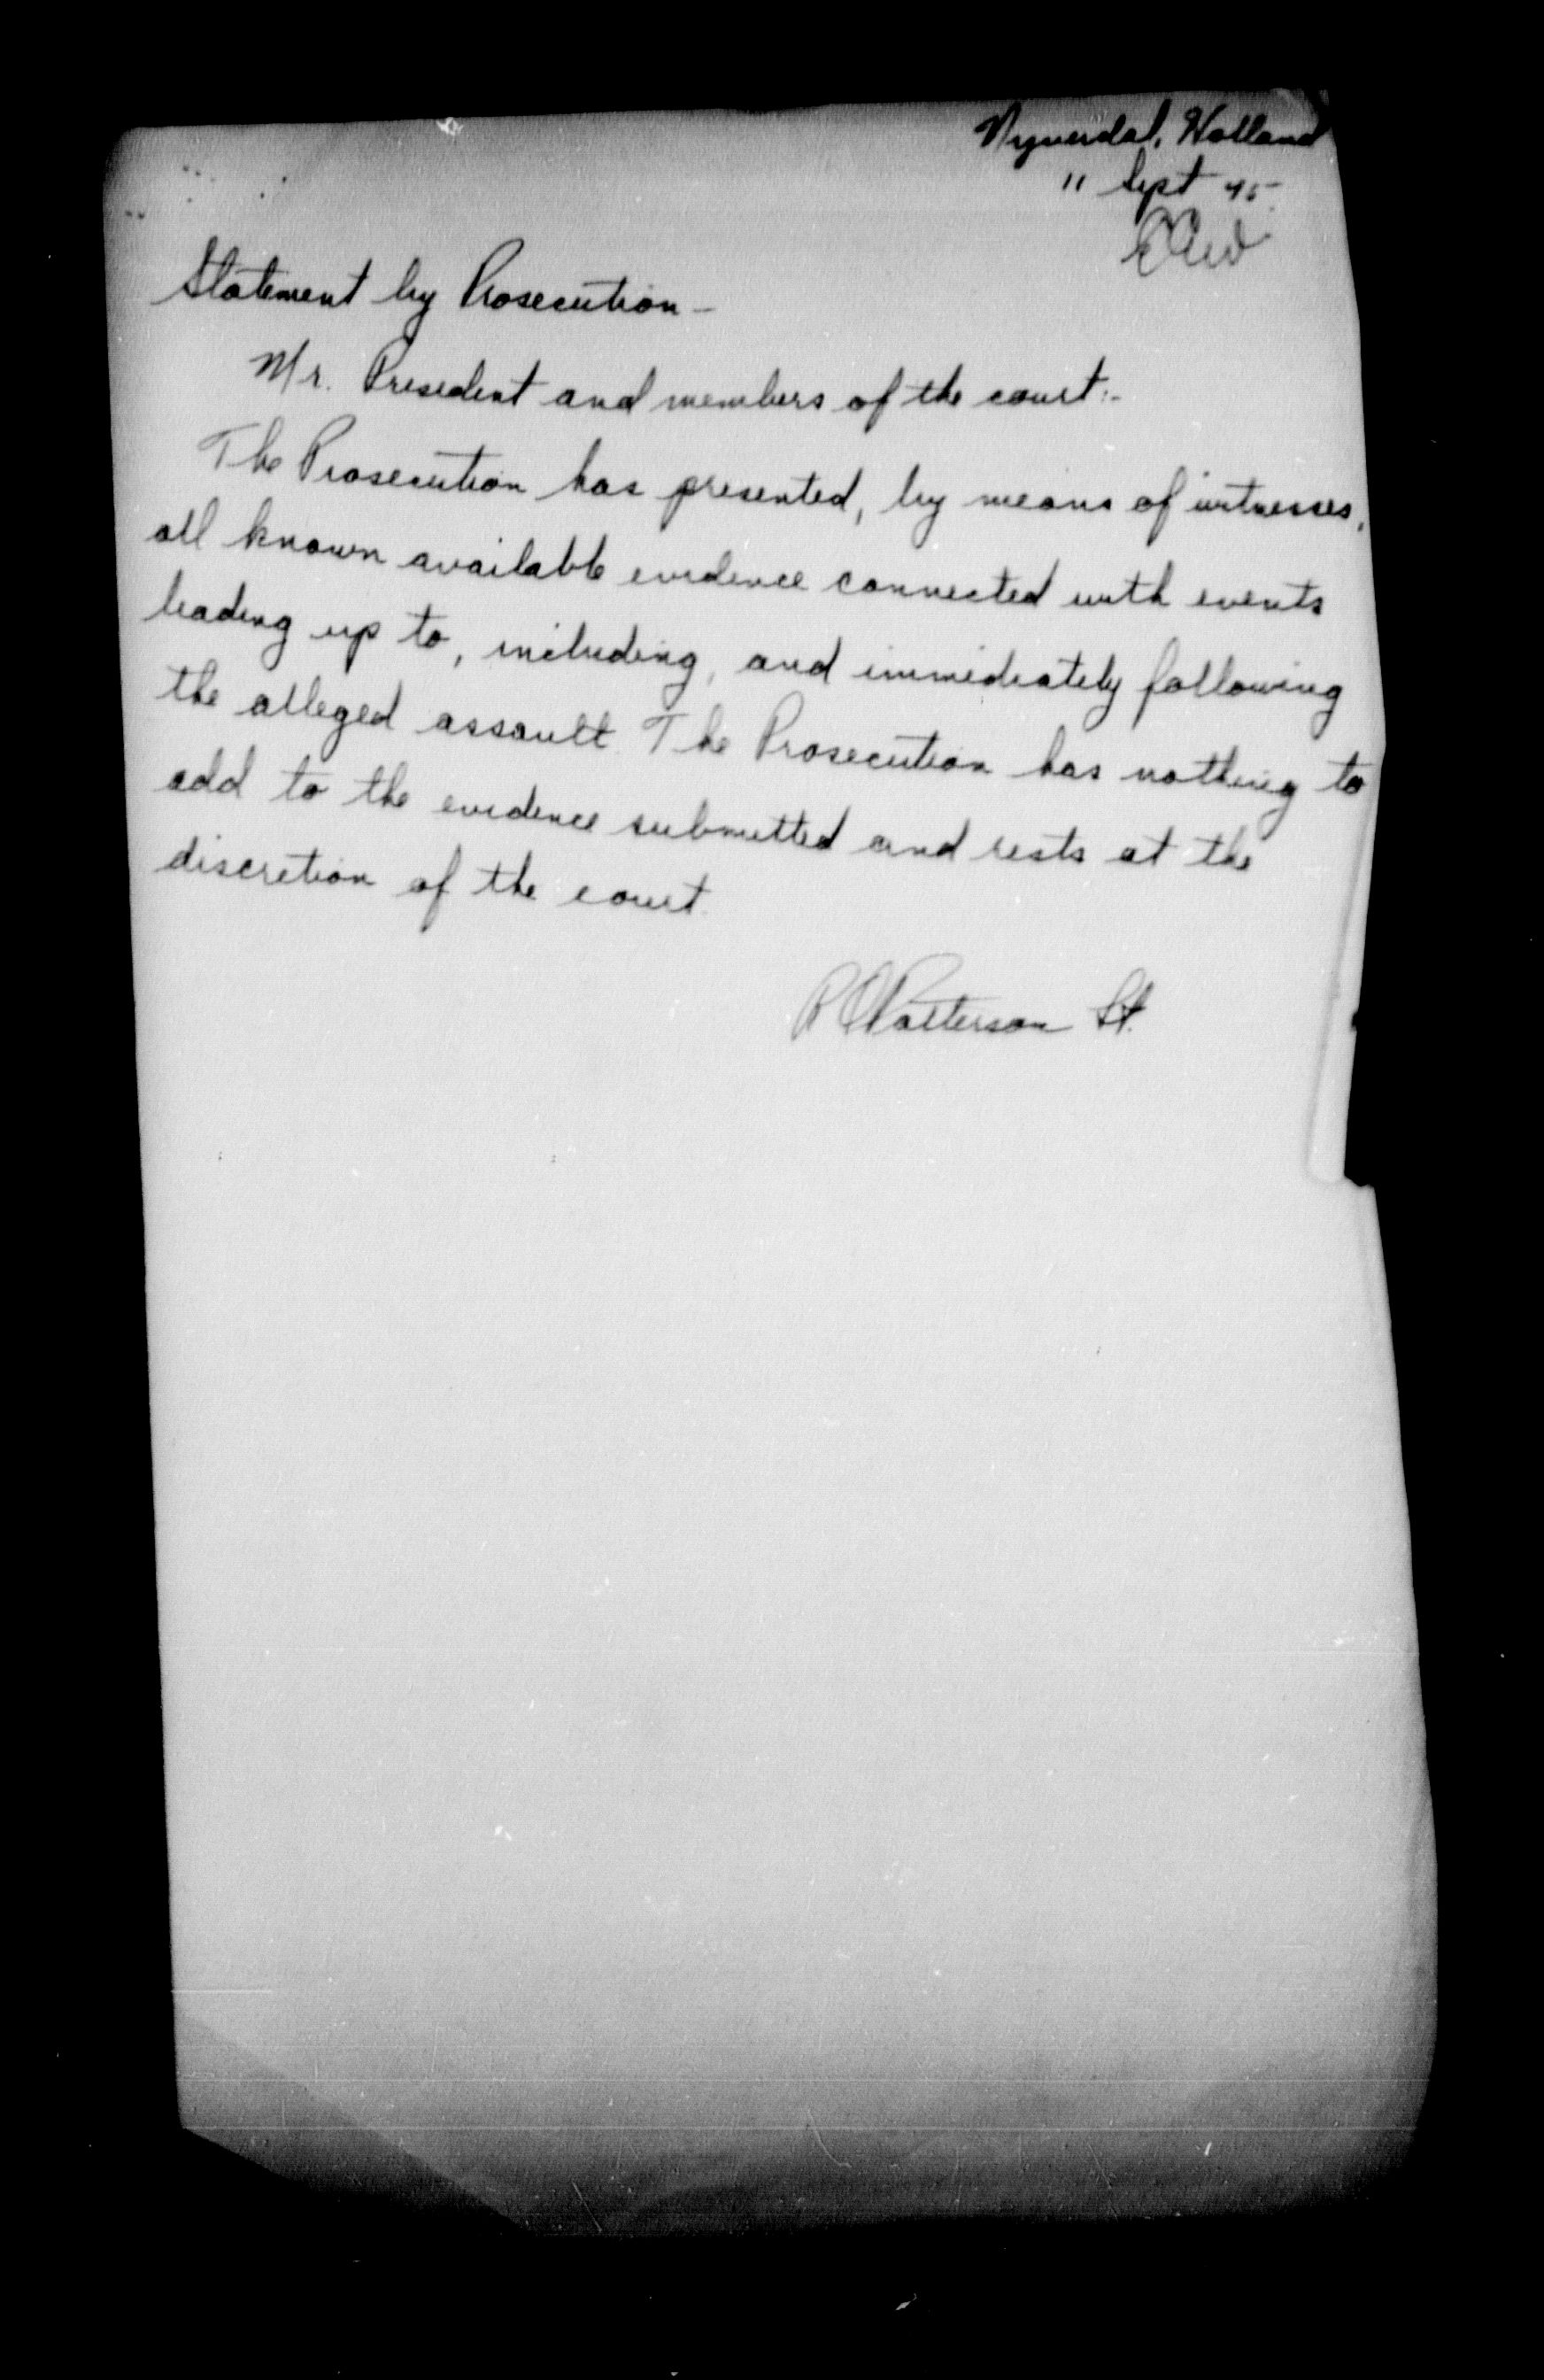 Nyverdal, Holland
11 Sept 45
Statement by Prosecution -
Mr. President and members of the court:-
The Prosecution has presented, by means of witnesses,
all known available evidence connected with events
leading up to, including, and immediately following
the alleged assault. The Prosecution has nothing to
add to the evidence submitted and rests at the
discretion of the court.
Patterson Lt.